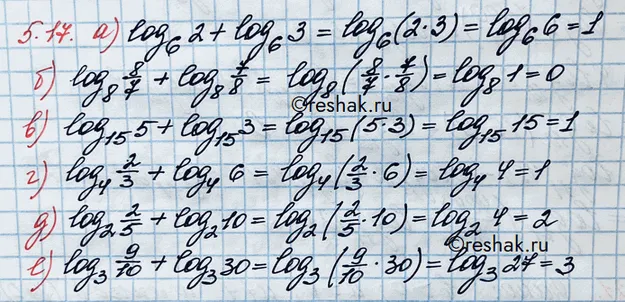 5.17. а) log₆ 2 + log₆ 3 = log₆ (2·3) = log₆ 6 = 1
б) log₈ 8/7 + log₈ 7/8 = log₈ (8/7 · 7/8) = log₈ 1 = 0
©reshak.ru
в) log₁₅ 5 + log₁₅ 3 = log₁₅ (5·3) = log₁₅ 15 = 1
г) log₄ 2/3 + log₄ 6 = log₄ (2/3 · 6) = log₄ 4 = 1
д) log₂ 2/5 + log₂ 10 = log₂ (2/5 · 10) = log₂ 4 = 2
©reshak.ru
е) log₃ 9/10 + log₃ 30 = log₃ (9/10 · 30) = log₃ 27 = 3